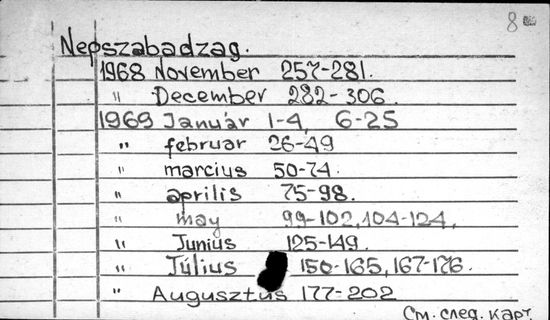 8
Nepszabadzag.
1968 November 257-281.
" December 282-306.
1969 Január 1-4, 6-25
" februar 26-49
" marcius 50-74.
" aprilis 75-98.
" may 99-102,104-124,
" Junius 125-149.
" Július 150-165,167-176.
" Augusztus 177-202
См. след. карт.